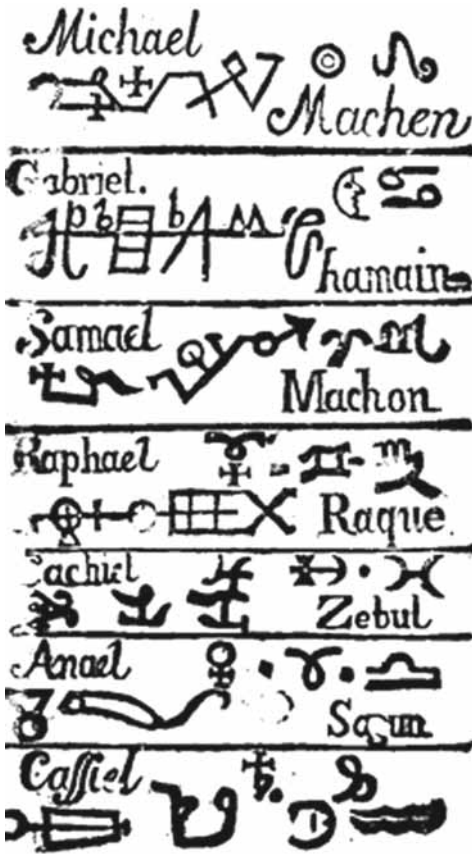 Michael
Machen
Gabriel.
p b b
Chamain
Samael
Machon
Raphael
Raque
Sachiel
Zebul
Anael
Sagun
Cassiel